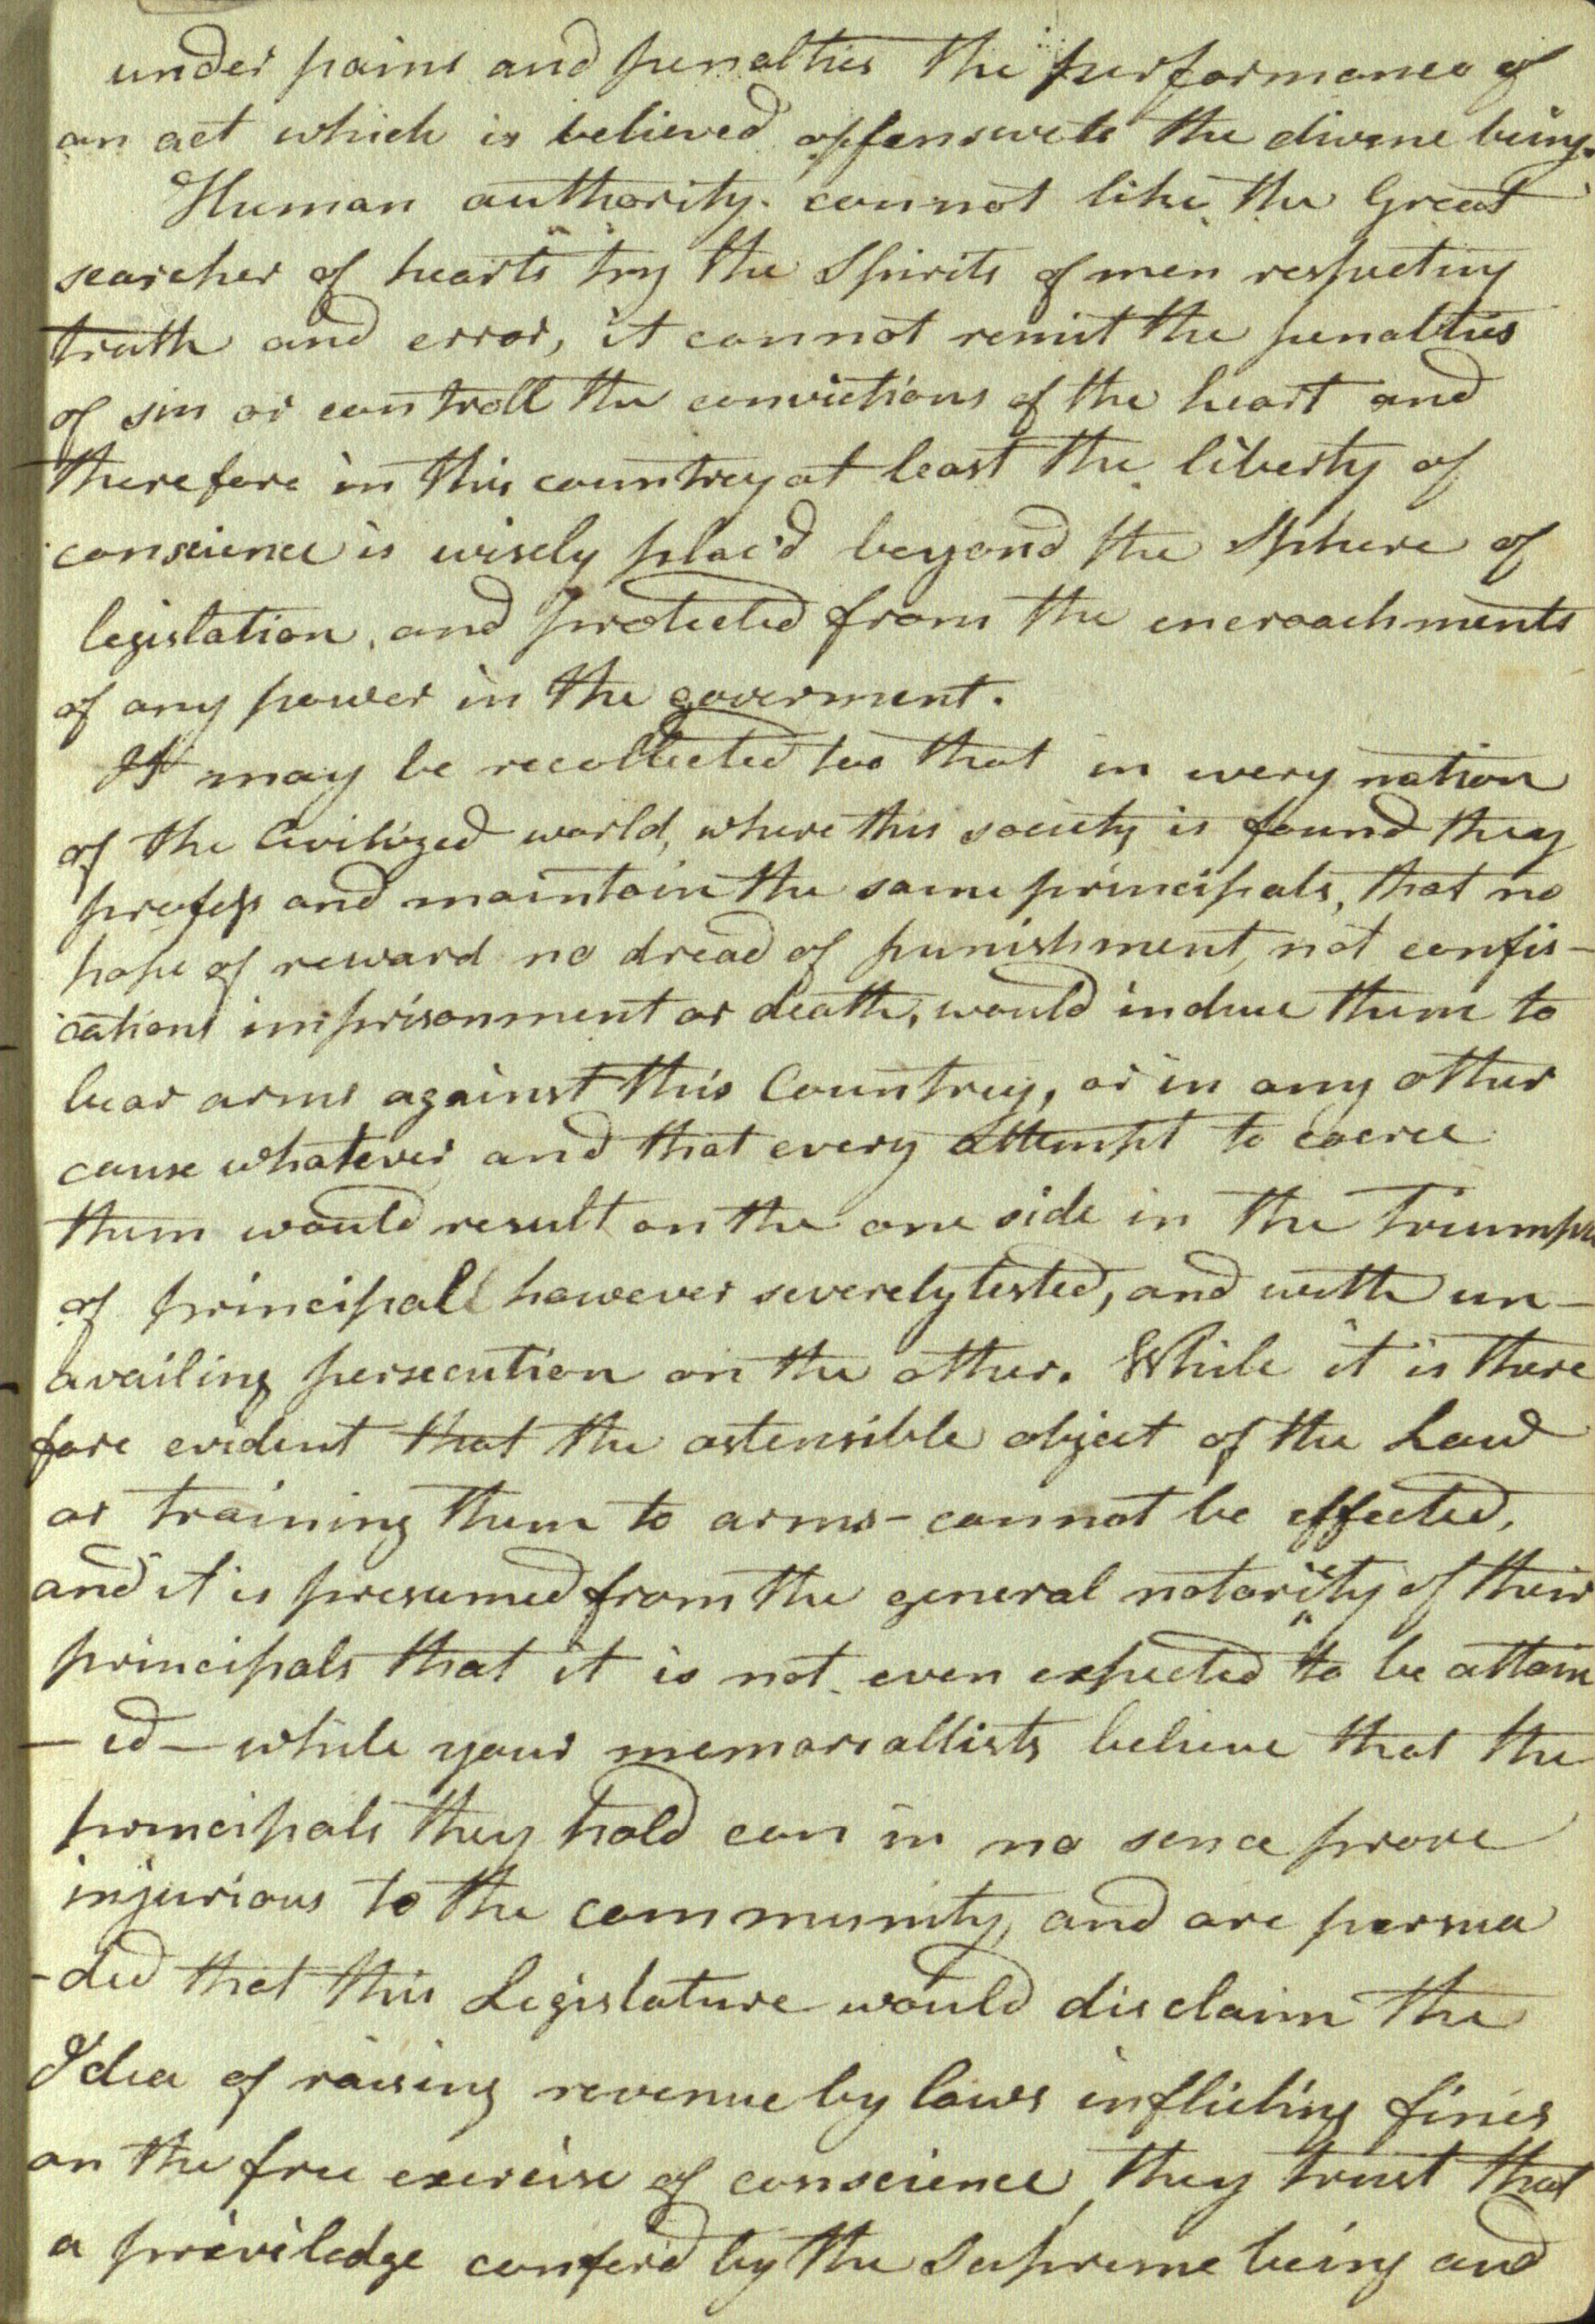 under pains and penalties the performance of
an act which is believed offensive to the divine being.
Human authority cannot like the Great
searcher of hearts try the Spirits of men respecting
truth and error, it cannot remit the penalties
of sin or controll the convictions of the heart and
therefore in this countrey at least the liberty of
conscience is wisely plac'd beyond the Sphere of
legislation, and protected from the encroachments
of any power in the goverment.
It may be recollected too that in every nation
of the Civilized world, where this society is found they
profess and maintain the same principals, that no
hope of reward no dread of punishment, not confis-
cations imprisonment or death, would induce them to
bear arms against this Countrey, or in any other
cause whatever and that every attempt to coerce
them would result on the one side in the Triumph
of principal however severely tested, and with un-
availing persecution on the other. While it is there
fore evident that the ostensible object of the Law
or training them to arms - cannot be effected,
and it is presumed from the general notoriety of their
principals that it is not even expected to be attain
-ed - while your memoriallists believe that the
principals they hold can in no sence prove
injurious to the community, and are persua
-ded that this Legislature would disclaim the
Idea of raising revenue by laws inflicting fines
on the free exercise of conscience, they trust that
a priviledge confer'd by the Supreme being and